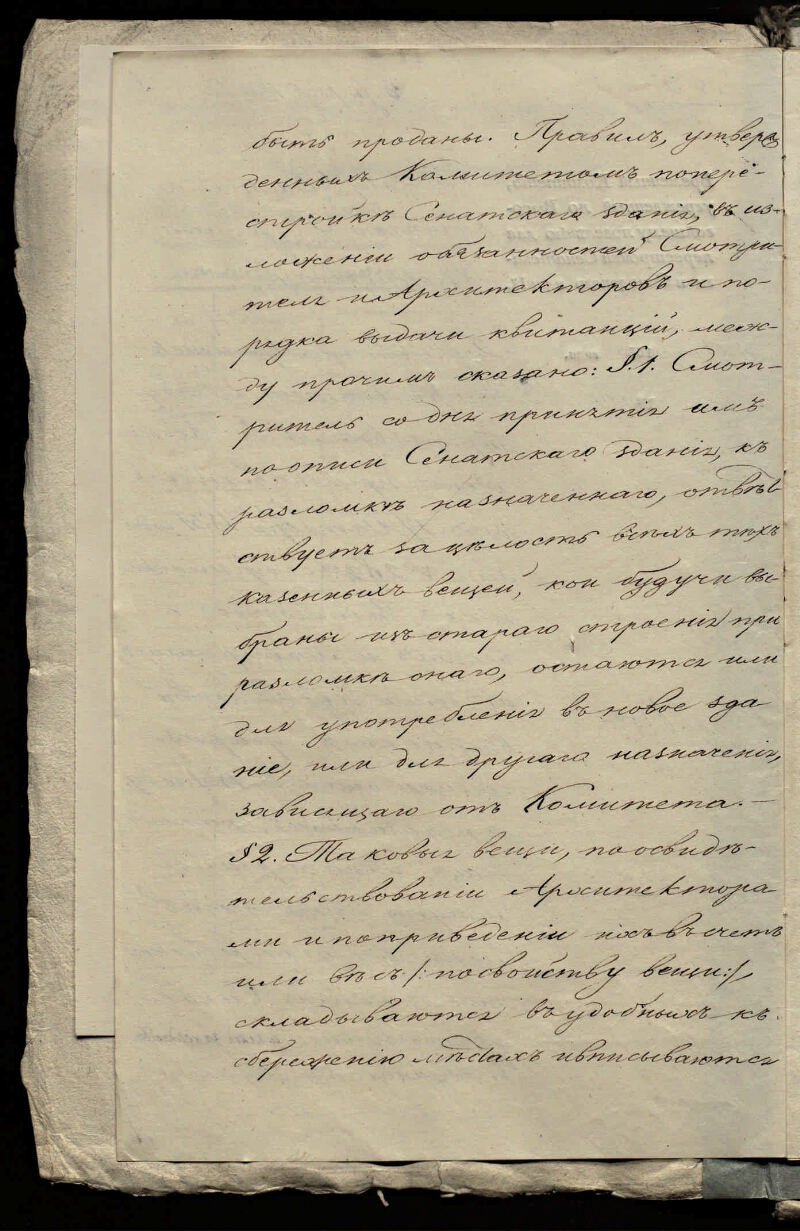 быть проданы. Правилъ, утверж
денныхъ Комитетомъ попере-
стройкѣ Сенатскаго зданія, въ из-
ложеніи обязанностей Смотри-
теля и Архитекторовъ и по-
рядка выдачи квитанцій, меж-
ду прочимъ сказано: §.1. Смот-
ритель со дня принятія имъ
по описи Сенатскаго зданія, къ
разломкѣ назначеннаго, отвѣт-
ствуетъ за цѣлость всѣхъ тѣхъ
казенныхъ вещей, кои будучи вы-
браны изъ стараго строенія при
разломкѣ онаго, остаются или
для употребленія въ новое зда
ніе, или для другаго назначенія,
зависящаго отъ Комитета. –
§ 2. Таковыя вещи, по освидѣ-
тельствованіи Архитектора-
ми и по приведеніи ихъ въ счетъ
или вѣсъ /: по свойству вещи :/,
складываются въ удобныхъ къ
сбереженію мѣстахъ и вписываются